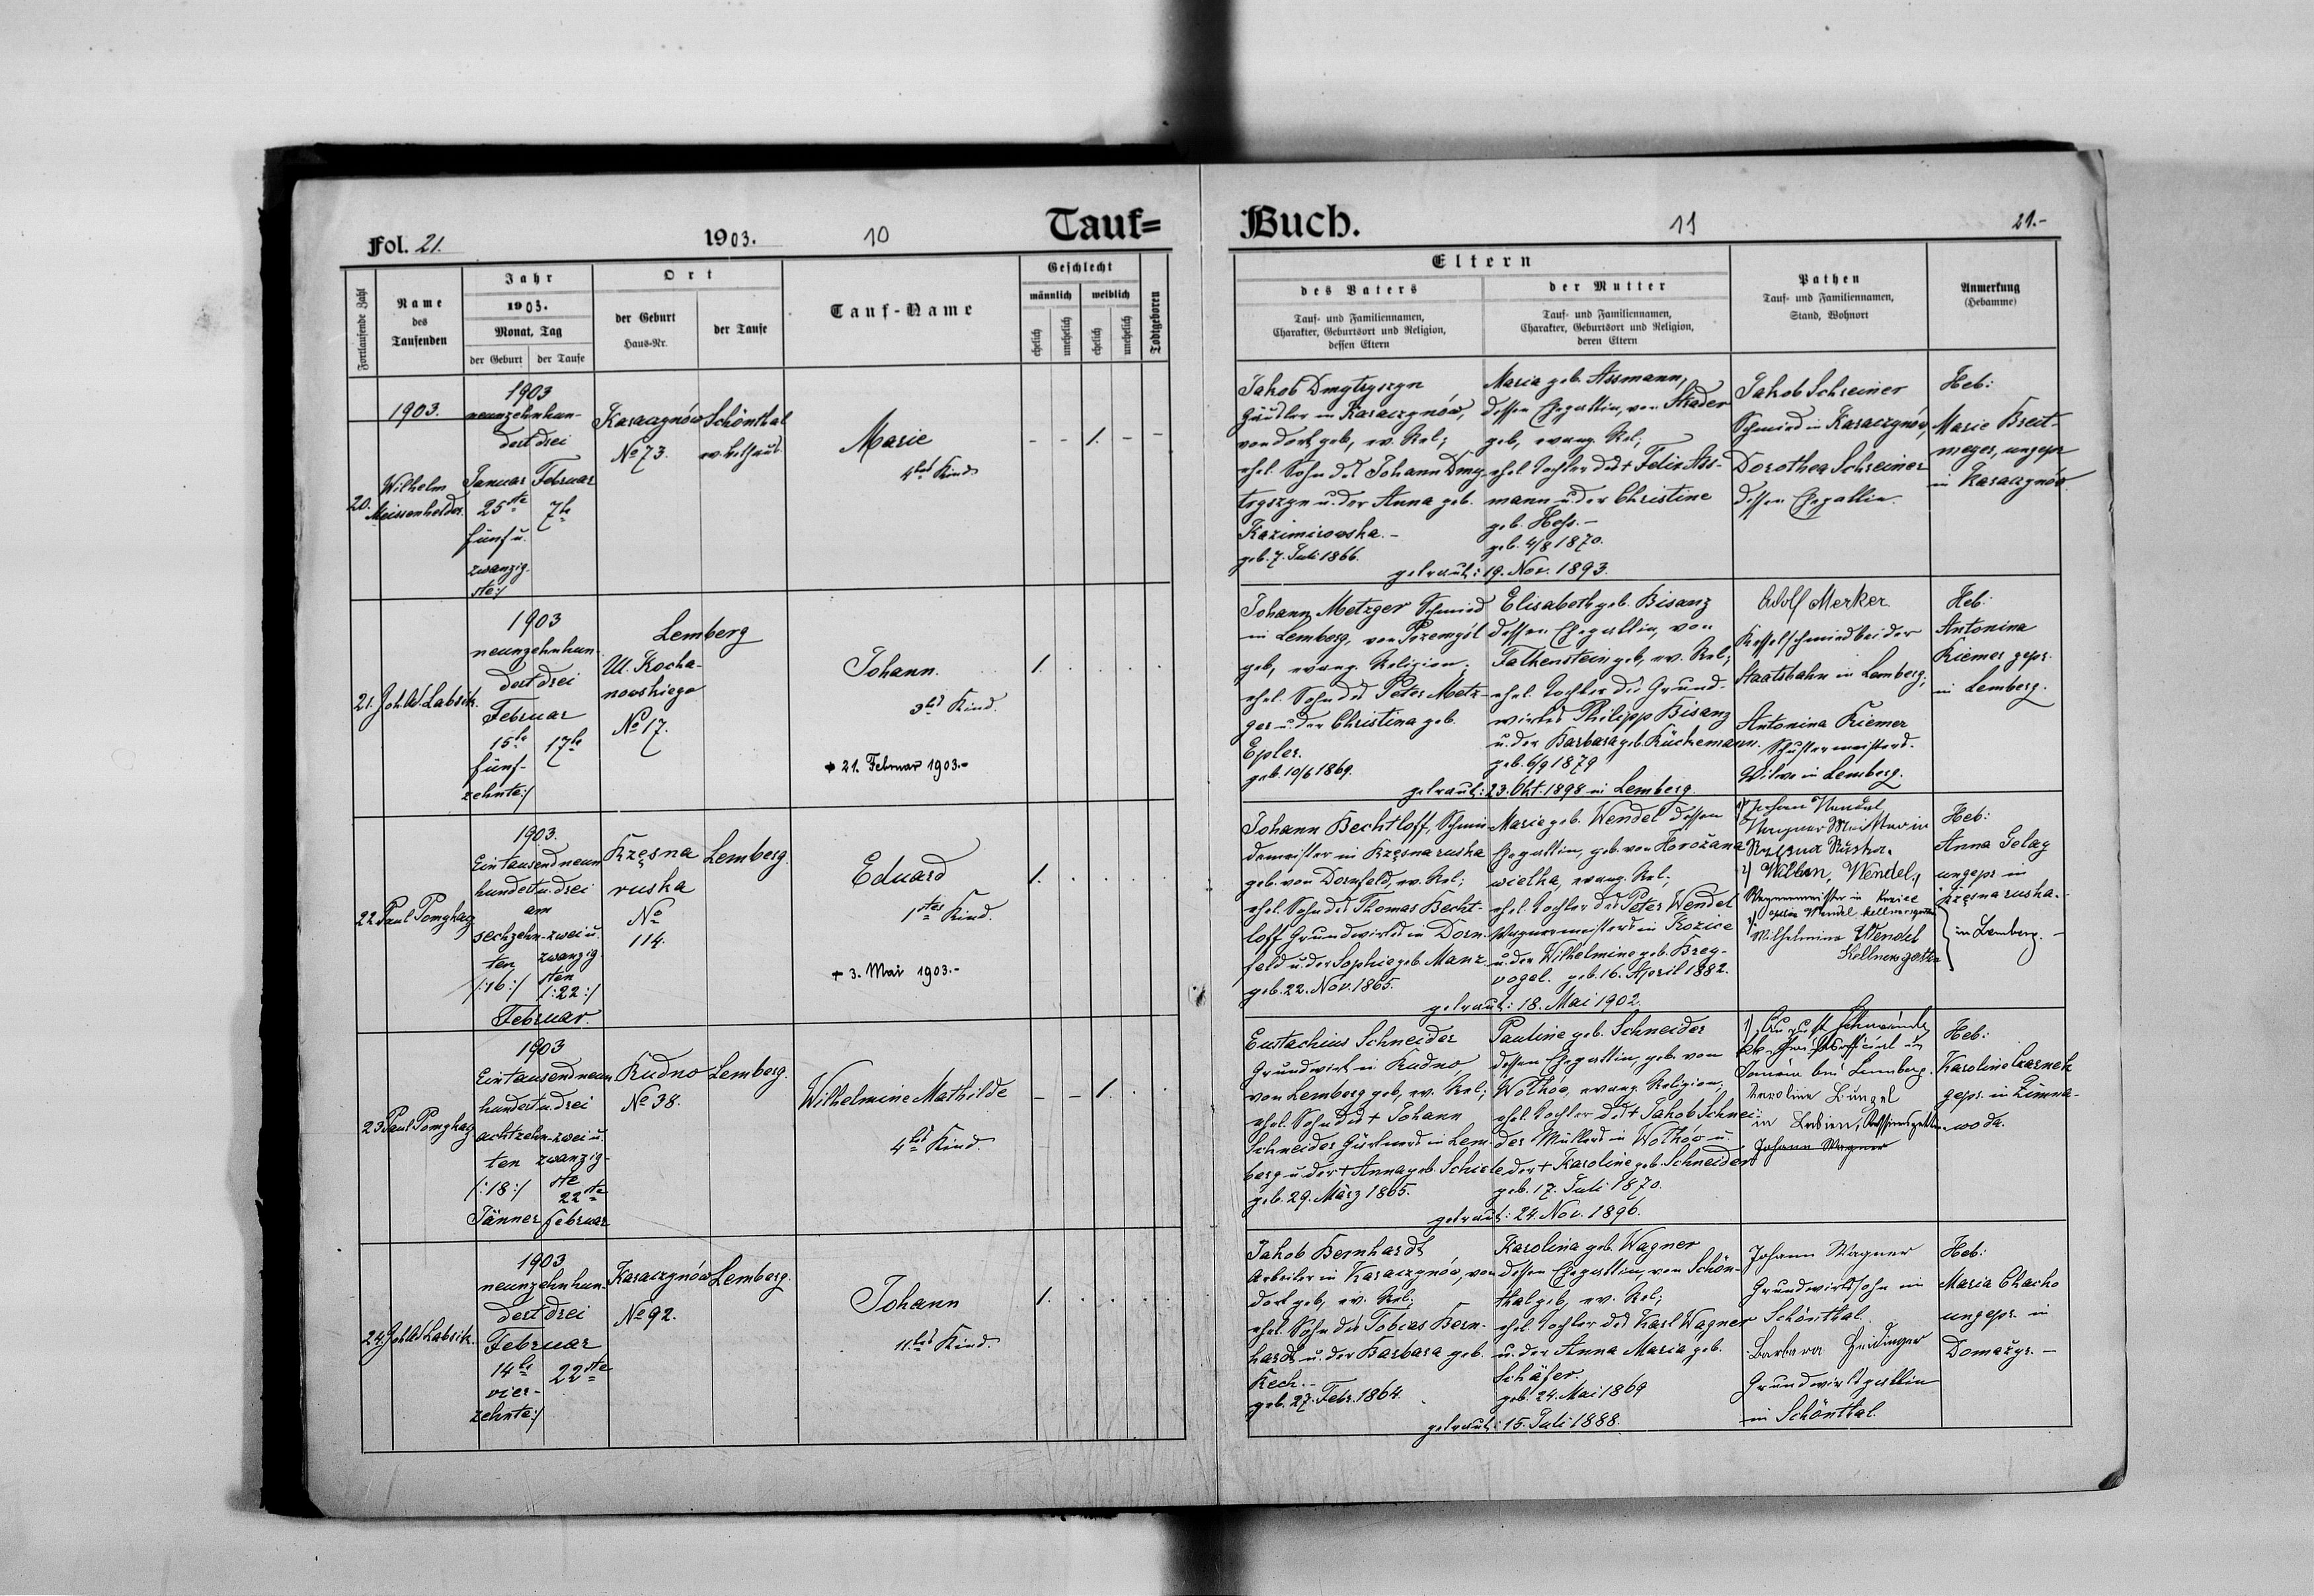 Fol. 21.
1903.
10
Tauf=
Fortlaufende Zahl
Name
des
Taufenden
Jahr
1903.
Monat, Tag
der Geburt
der Taufe
Ort
der Geburt
Haus-Nr.
der Taufe
Tauf-Name
Geschlecht
männlich
weiblich
ehelich
unehelich
ehelich
unehelich
Todtgeboren
1903.
20.
Wilhelm
Meissenhelder.
1903
neunzehnhun-
dert drei
Januar Februar
25te 7te
fünf u.
zwanzig-
ste:/
Karaczynów
No 73.
Schönthal
ev. Bethaus.
Marie
4tes Kind
- - 1. - -
21. Joh. Wl. Labsik.
1903
neunzehnhun-
dert drei
Februar
15te 17te
fünf-
zehnte:/
Lemberg
Ul. Kocha-
nowskiego
No 17.
Johann.
3tes Kind.
+ 21. Februar 1903.-
1.
22 Paul Pomykacz
1903.
Eintausendneun
hundert u. drei
am
sechzehn- zwei u.
ten zwanzig
/:16:/ sten
/:22:/
Februar.
Krzęsna
ruska
No
114.
Lemberg.
Eduard
1stes Kind.
+ 3. Mai 1903.-
1.
23 Paul Pomykacz
1903
Eintausendneun
hundert u. drei
achtzehn- zwei u.
ten zwanzig-
/:18:/ ste
22ste
Jänner Februar
Rudno
No 38.
Lemberg.
Wilhelmine Mathilde
4tes Kind.
- - 1.
24. Joh. Wl. Labsik.
1903
neunzehnhun-
dert drei
Februar
14te 22ste
vier-
zehnte:/
Karaczynów
No 92.
Lemberg.
Johann
11.tes Kind.
1.
Buch.
11
21.-
Eltern
des Vaters
Tauf- und Familiennamen,
Charakter, Geburtsort und Religion,
dessen Eltern
der Mutter
Tauf- und Familiennamen,
Charakter, Geburtsort und Religion,
deren Eltern
Pathen
Tauf- und Familiennamen,
Stand, Wohnort
Anmerkung
(Hebamme)
Jakob Dmytryszyn
in Karaczynów,
von dort geb, ev. Rel;
ehel. Sohn des Johann Dmy-
tryszyn u. der Anna geb.
Kazimirowska.-
geb. 7. Juli 1866.
Maria geb. Assmann,
dessen Ehegattin, von Stader
geb, evang. Rel;
ehel. Tochter des + Felix Ass-
mann u. der Christine
geb. Hess.-
geb. 4/8 1870.
getraut: 19. Nov. 1893.
Jakob Schreiner
Schmied in Karaczynów,
Dorothea Schreiner
dessen Ehegattin.
Heb:
Marie Breit-
meyer, ungepr
in Karaczynów.
Johann Metzger Schmied
in Lemberg, von Przemyśl
geb, evang. Religion;
ehel. Sohn des Peter Metz-
ger u. der Christina geb.
Epler.
geb. 10/6 1869.
Elisabeth geb. Bisanz
dessen Ehegattin, von
Falkenstein geb, ev. Rel;
ehel. Tochter des Grund-
wirtes Philipp Bisanz
u. der Barbara geb. Rückemann.
geb. 6/9 1879
getraut: 23. Okt. 1898 in Lemberg.
Adolf Merker
Kesselschmied bei der
Staatsbahn in Lemberg,
Antonina Riemer
Schustermeisters-
Witwe in Lemberg.
Heb:
Antonina
Riemer gepr.
in Lemberg.
Johann Bechtloff, Schmie-
demeister in Krzęsna ruska
geb. von Dornfeld, ev. Rel;
ehel. Sohn des Thomas Becht-
loff Grundwirtes in Dorn-
feld u. der Sophie geb. Manz.
geb. 22. Nov. 1865.
Marie geb. Wendel dessen
Ehegattin, geb. von Horożana
wielka, evang. Rel;
ehel. Tochter des Peter Wendel
Wagnermeisters in Kozice
u. der Wilhelmine geb. Breg-
vogel. geb. 16. April 1882.
getraut: 18. Mai 1902.
1) Johann Wendel
Wagner Meister in
Ruska.
2) Wendel,
Wagnermeister in Kozice
Wendel Kellnersgattin
Wilhelmine Wendel
Kellnersgattin
Heb:
Anna Gelag
ungepr. in
Krzęsna ruska.
in Lemberg. -
Eustachius Schneider
Grundwirt in Rudno,
von Lemberg geb, ev. Rel;
ehel. Sohn des + Johann
Schneider Gärtners in Lem-
berg u. der + Anna geb. Schiele
geb. 29. März 1865.
Pauline geb. Schneider
dessen Ehegattin, geb. von
Wolków, evang. Religion;
ehel. Tochter des + Jakob Schnei-
der Müllers in Wolków u.
der + Karoline geb. Schneider
geb. 17. Juli 1870.
getraut: 24. Nov. 1896.
1) August
Janow bei Lemberg.
Karoline
in
Johann Wagner
Heb:
Karoline Czarnek
gepr. in Zimna-
woda.
Jakob Bernhardt
Arbeiter in Karaczynów, von
dort geb, ev. Rel;
ehel. Sohn des Tobias Bern-
hardt u. der Barbara geb.
Rech.-
geb. 27. Febr. 1864.
Karolina geb. Wagner
dessen Ehegattin, von Schön-
thal geb, ev. Rel;
ehel. Tochter des Karl Wagner
u. der Anna Maria geb.
Schäfer.
geb. 24. Mai 1869
getraut: 15. Juli 1888.
Johann Wagner
Grundwirtssohn in
Schönthal.
Barbara Heidinger
Grundwirtsgattin
in Schönthal.
Heb:
Maria Chacko
ungepr. in
Domażyr. -